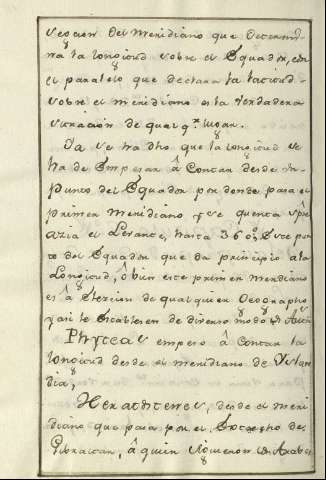 Seccion del meridiano que determi-
na la longitud sobre el Equador, con
el paralelo que declara la latitud
sobre el meridiano es la verdadera
situacion de qualqr lugar.
Ya se ha dho que la longitud se
ha de empezar â contar desde un
punto del Equador por donde pasa el
primer meridiano y se quenta spre
azia el Levante, hasta 360°, Este pun
to del Equador que da principio a la
Longitud, ô bien este primer meridiano
es â elecion de qualquier Geographo
y asi le establesen de diverso modo
Phyteas empezo â contar la
longitud desde el meridiano de
dia,
desde el meri
diano que pasa por el Estrecho de
Gibraltar, â quien siguieron